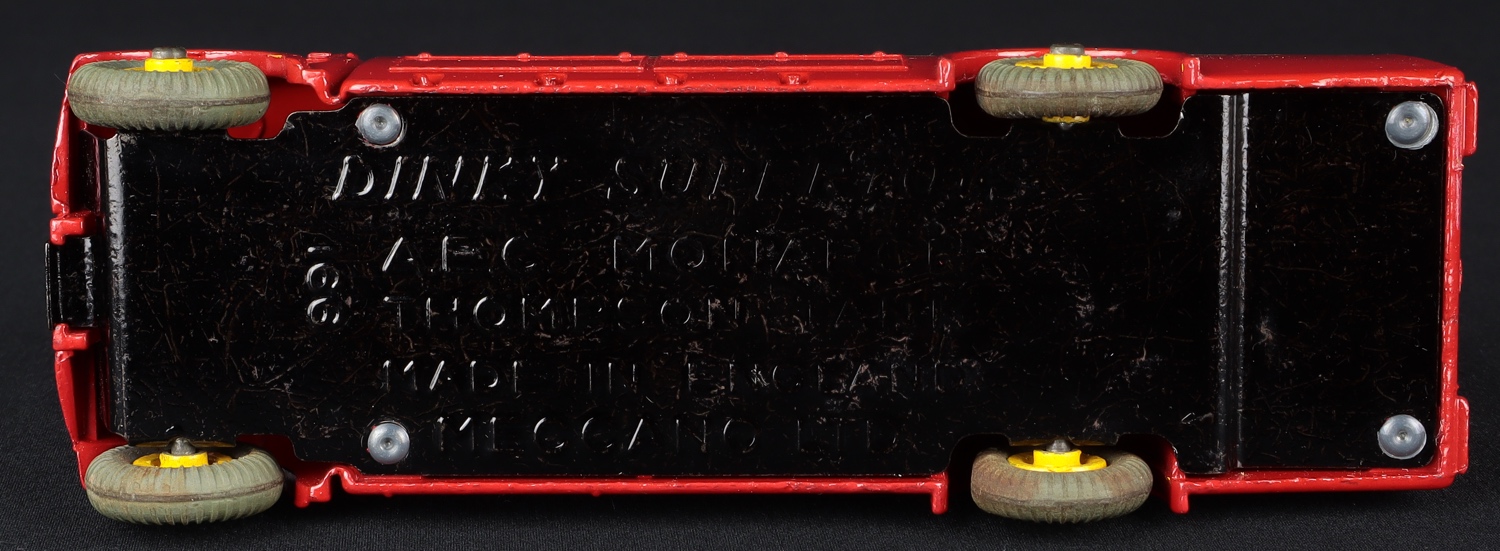 DINKY SUPERTOYS
A.E.C. MONARCH
THOMPSON TANK
MADE IN ENGLAND
MECCANO LTD.
991